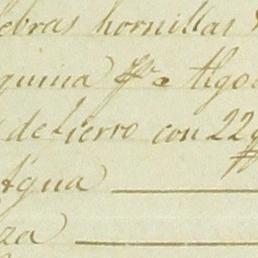 lebras hornillas
quina pa. Algo
de fierro con 22
Agua
za